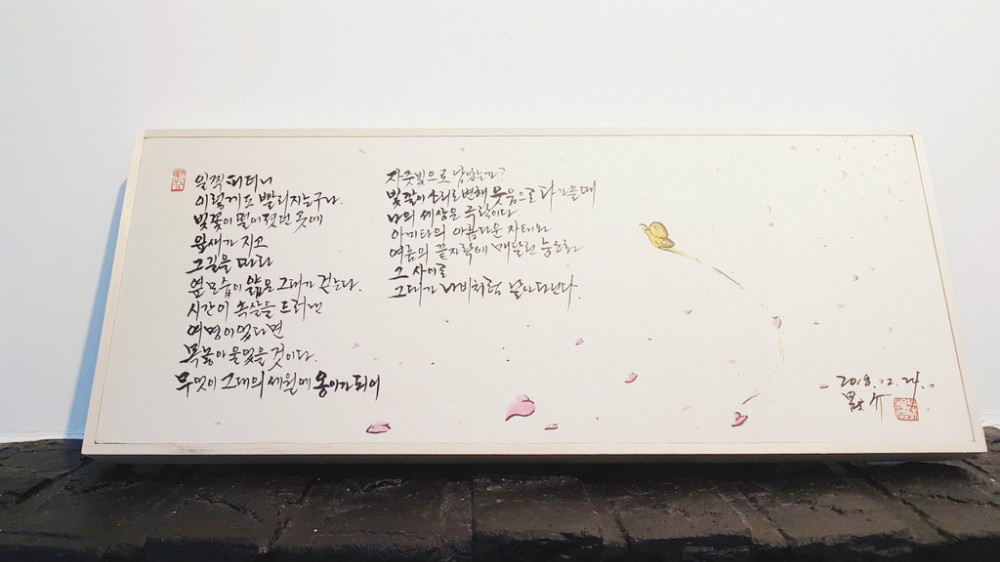 일찍 피더니
이렇게도 빨리 지는구나.
벚꽃이 떨어졌던 곳에
잎새가 지고
그 길을 따라
옆모습이 닮은 그대가 걷는다.
시간이 속살을 드러낸
여명이었다면
목놓아 울었을 것이다.
무엇이 그대의 세월에 옹이가 되어
자줏빛으로 남았는가?
빛깔이 소리로 변해 웃음으로 다가올 때
나의 세상은 극락이다.
아미타의 아름다운 자태와
여름의 끝자락에 매달린
그 사이로
그대가 나비처럼 날아다닌다.
2018.12.24.